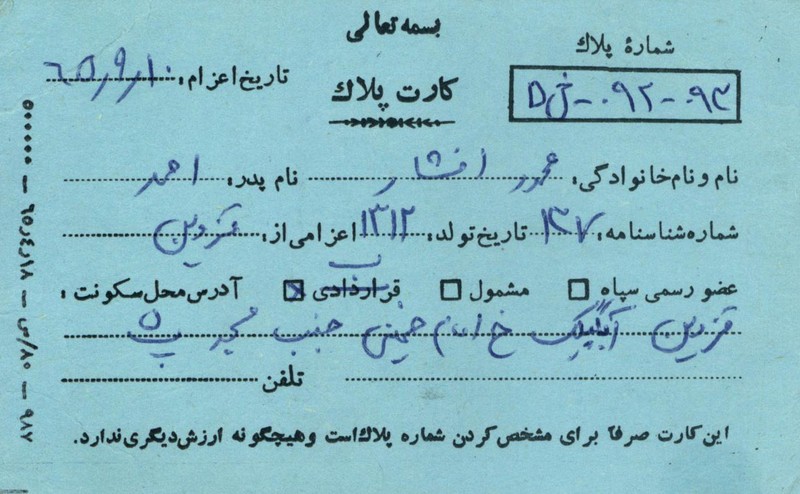 بسمه تعالی
شمارهٔ پلاک
۰۹۳-۰۹۲-خ D
کارت پلاک
تاریخ اعزام: ۶۵/۹/۱۰
نام و نام خانوادگی: محمود افشار نام پدر: احمد
شماره شناسنامه: ۱۳۷ تاریخ تولد: ۱۳۱۲ اعزامی از: قزوین
عضو رسمی سپاه مشمول قراردادی آدرس محل سکونت:
قزوین آبگیلک خ امام خمینی جنب مسجد پ ۵
تلفن
این کارت صرفاً برای مشخص کردن شماره پلاک است و هیچگونه ارزش دیگری ندارد.
۵۰۰۰۰۰ — ۶۵/۴/۱۸ — س/۸۰ — ۹۸۷